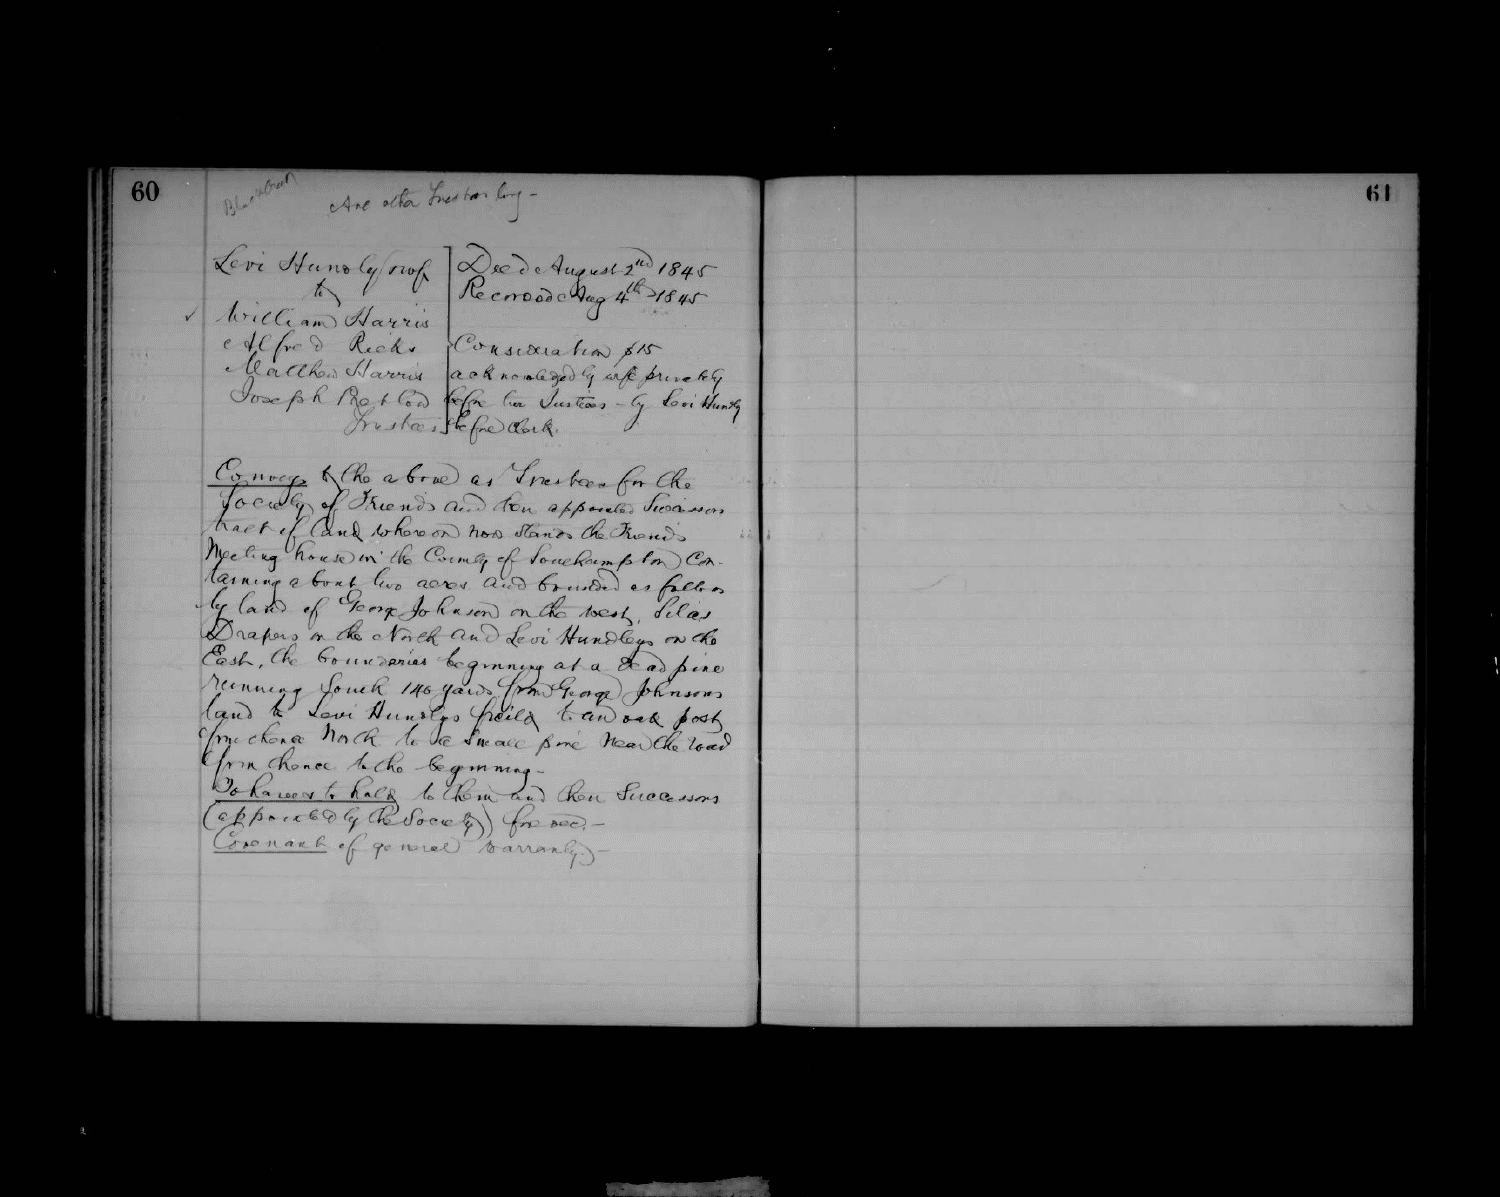 60
61
Are other Trustees
Levi Hundly & wf
to
William Harris
Alfred Ricks
Matthew Harris
Joseph Pretlow
Trustees
Deed August 2nd 1845
Recorded Aug 4th 1845
Consideration $15
acknowledged by wife privately
before two Justices - by Levi Hundly
before Clerk.
Conveys to the above as Trustees for the
Society of Friends and their appointed Successors
tract of land whereon now stands the Friends
Meeting house in the County of Southampton Con-
taining about two acres and bounded as follows
by land of George Johnson on the west, Silas
Drapers on the North and Levi Hundleys on the
East, the boundaries beginning at a dead pine
running South 140 yards from George Johnsons
land to Levi Hundlys feild to an oak post
from thence North to a small pine near the road
from thence to the beginning -
To have & to hold to them and their Successors
(appointed by the Society) forever. -
Covenant of general warranty. -